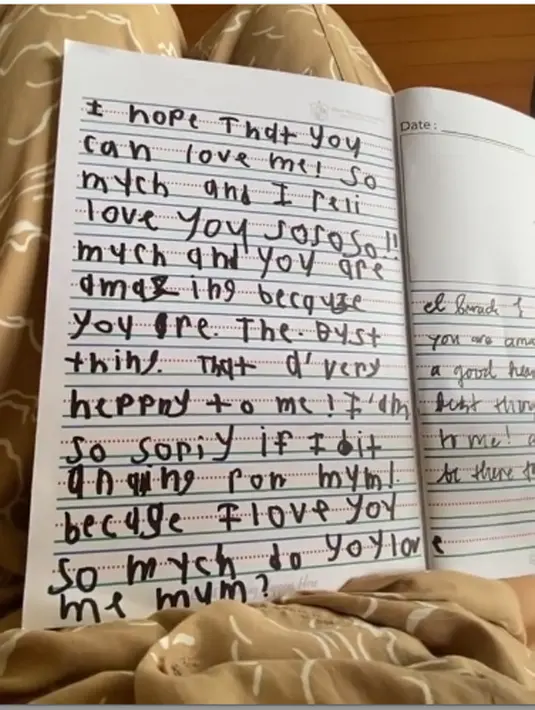 I hope That you
can love me! so
mych and I reli
love you sososo!!
mych and you are
amazing becayse
you are. The. Byst
thing. That d' very
heppny to me! I'am
so soriy if I dit
anqing ron mym!
becayse I love yoy
so mych do yoy love
me mym?
Date:
you are ama
a good hear
best thin
to me! a
be there f